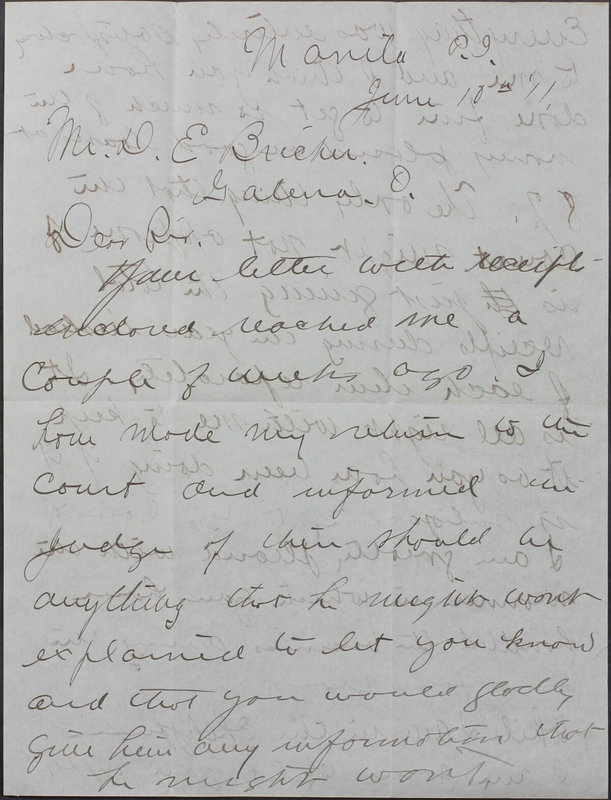 Manila P.I.
June 10th 11
Mr. D. E Bricker.
Galena. O.
Dear Bro.
Your letter with receipts
enclosed reached me a
couple of weeks ago I
have made my return to the
court and informed the
Judge if there should be
anything that he might want
explained to let you know
and that you would gladly
give him any information that
he might want,